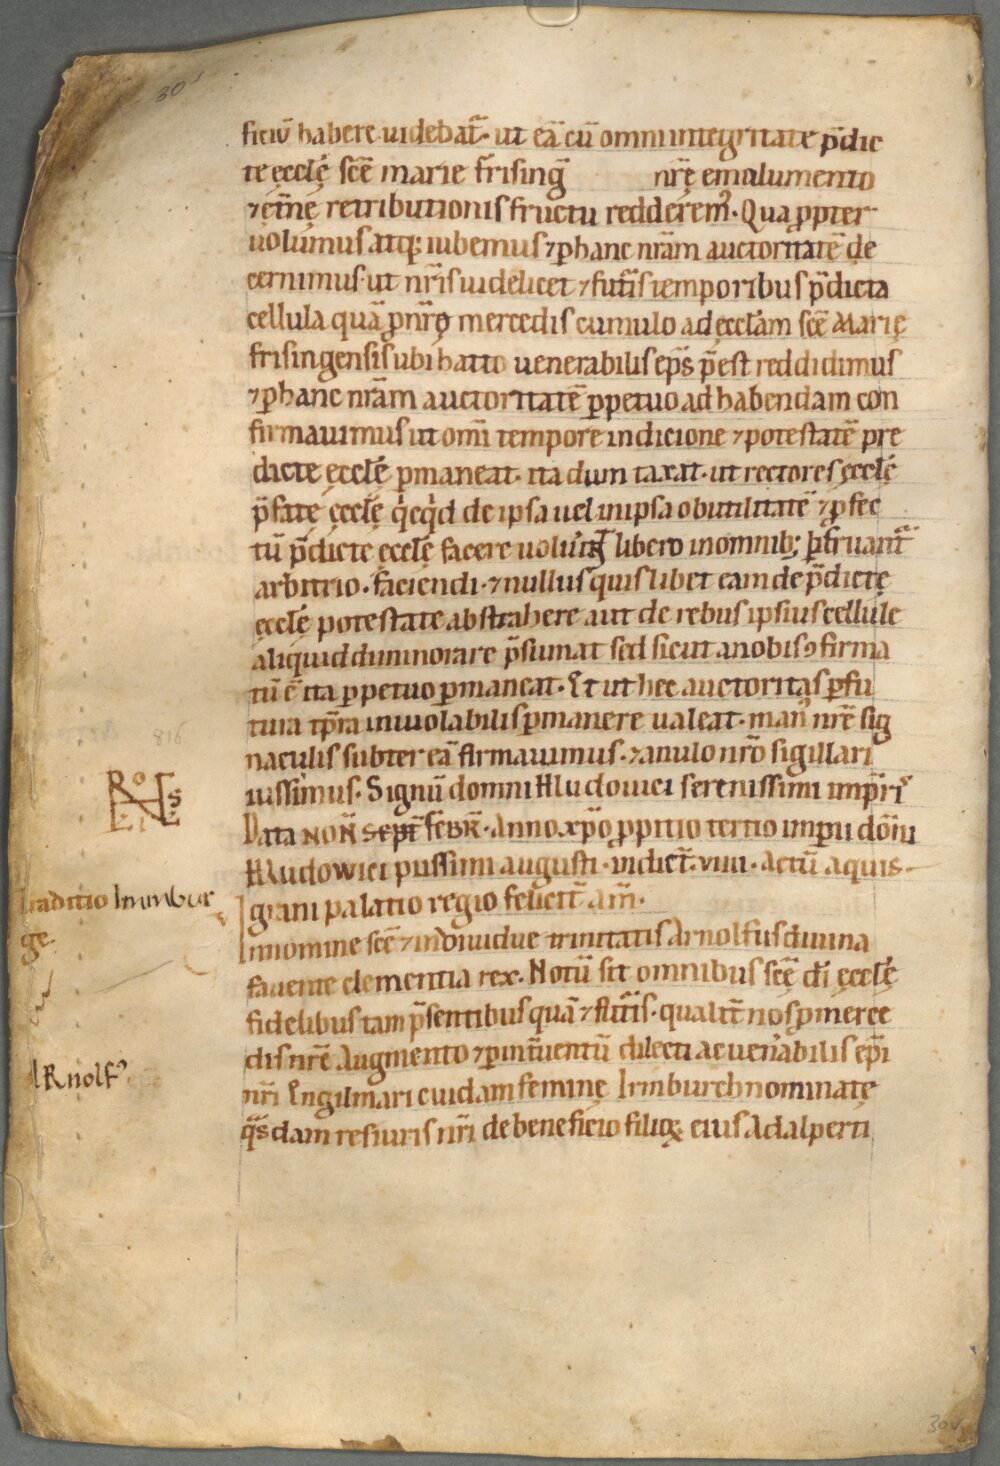 30v
ficiū habere uidebat᷑· ut eā cū omni integritate p̄dic
te ęccl̄ę sc̄e marie frising̅ nr̄ę emolumento
⁊ ęt̄nę retributionis fructu redderem᷒· Qua ꝓpter
uolumus atq; iubemus ⁊ ꝑ hanc nr̄am auctoritatē de
cernimus· ut nr̄is uidelicet ⁊ fut᷑is temporibus p̄dicta
cellula quā ꝓ nr̄ę mercedis cumulo ad ęccl̄am sc̄ę Marię
frisingensis ubi hatto uenerabilis ep̄s p̄est reddidimus
⁊ ꝑ hanc nr̄am auctoritatē ꝑpetuo ad habendam con
firmauimus ut omī tempore in dicione ⁊ potestatē pre
dictę ęccl̄ę ꝑmaneat· ita dum taxat· ut rectores ęccl̄ę
p̄fatę ęccl̄ę qⁱcqⁱd de ipsa uel in ipsa ob utilitatē ⁊ ꝓfec
tū p̄dictę ęccl̄ę facere libero in omnib; ꝑfruant᷑
arbitrio· faciendi· ⁊ nullus quislibet eam de p̄dictę
ęccl̄ę potestate abstrahere aut de rebus ipsius cellule
aliquid diminorare p̄sumat sed sicut a nobis ꝯfirma
tū ē ita ꝑpetuo ꝑmaneat· Et ut hec auctoritas ꝑ fu
tura tp̄ra inuiolabilis ꝑmanere ualeat· man᷒ nr̄e sig
naculis subter eā firmauimus· ⁊ anulo nr̄o sigillari
iussimus· Signū domni Hludouici serenissimi imp̄ris
Data NON̄ Sept̄ FEBR̄· Anno xp̄o ꝓpitio tertio imperii dōni
Hludowici piissimi augusti· indict̄· viiii· actū aquis-
grani palatio regio felicit̄ am̄·
In nomine sc̄e ⁊ indiuidue trinitatis Arnolfus diuina
fauente clementia rex· Notū sit omnibus sc̄ę dī ęccl̄ę
fidelibus tam p̄sentibus quā ⁊ fut᷑is· qualit̄ nos ꝓ merce
dis nr̄e Augmento ⁊ ꝑ int̄uentū dilecti ac uen̄abilis ep̄i
nr̄i Engilmari cuidam feminę Irmburch nominatę
qᵃsdam res iuris nr̄i de beneficio filioꝝ eius Adalperti
816
Traditio Irminbur
ge·
ARnolf᷒
30v